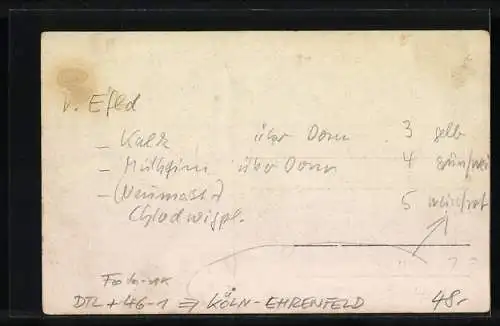 v. Efld
– Kalk über Dom 3 gelb
– Mülheim über Dom 4 grün/
– (Neumarkt)
Chlodwigpl. 5 weiß/rot
Foto-AK
DTL + 46-1 ⇒ KÖLN-EHRENFELD 48.-